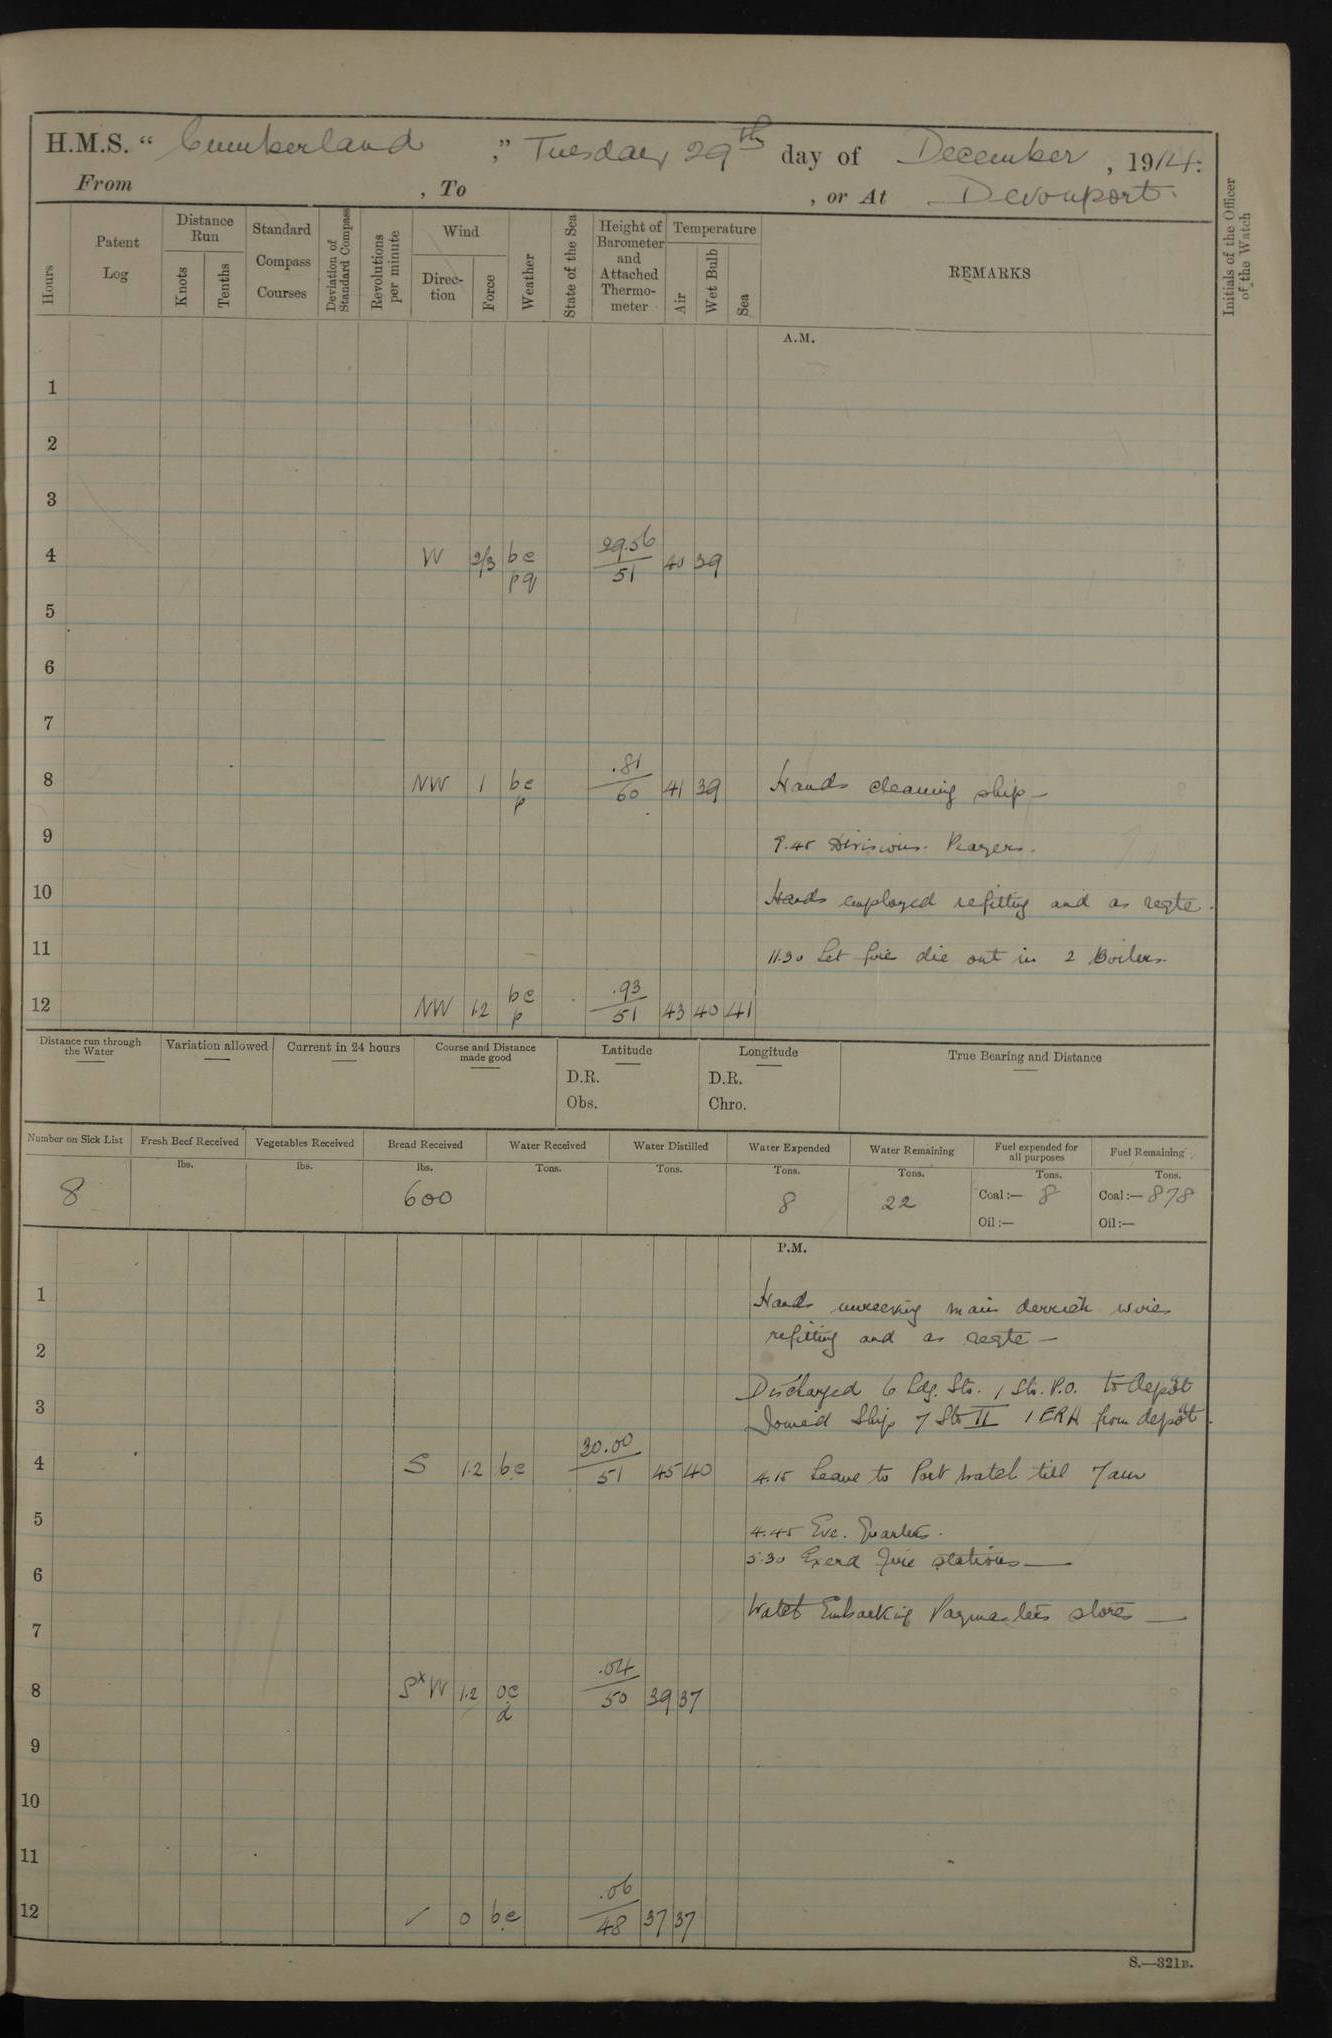 H.M.S. “ Cumberland ,” Tuesday 29th day of December , 1914.
From , To , or At Devonport.
Hours
Patent Log
Distance Run
Knots
Tenths
Standard Compass Courses
Deviation of Standard Compass
Revolutions per minute
Wind
Direction
Force
Weather
State of the Sea
Height of Barometer and Attached Thermometer
Temperature
Air
Wet Bulb
Sea
REMARKS
Initials of the Officer of the Watch
A.M.
1
2
3
4 W 2/3 bc pq 29.56 51 40 39
5
6
7
8 NW 1 bc p .81 60 41 39 Hands cleaning ship —
9 9.45 Divisions. Prayers.
10 Hands employed refitting and as reqte.
11 11.30 Let fire die out in 2 Boilers.
12 NW 1.2 bc p .93 51 43 40 41
Distance run through the Water
Variation allowed
Current in 24 hours
Course and Distance made good
Latitude
D.R.
Obs.
Longitude
D.R.
Chro.
True Bearing and Distance
Number on Sick List
Fresh Beef Received
Vegetables Received
Bread Received
Water Received
Water Distilled
Water Expended
Water Remaining
Fuel expended for all purposes
Fuel Remaining
lbs. lbs. lbs. Tons. Tons. Tons. Tons. Tons. Tons.
8 600 8 22 Coal :— 8 Coal :— 878
Oil :— Oil :—
P.M.
1 Hands unreeving main derrick wires
2 refitting and as reqte —
Discharged 6 Ldg. Sto. 1 Sto. P.O. to depôt
3 Joined Ship 7 Sto II 1 ERA from depôt.
4 S 1.2 bc 30.00 51 45 40 4.15 Leave to Port Watch till 7 am
5 4.45 Eve. Quarters.
5.30 Exerd fire stations —
6
Watch Embarking Paymasters stores —
7
8 SxW 1.2 oc d .04 50 39 37
9
10
11
12 ✓ 0 bc .06 48 37 37
S.—321B.